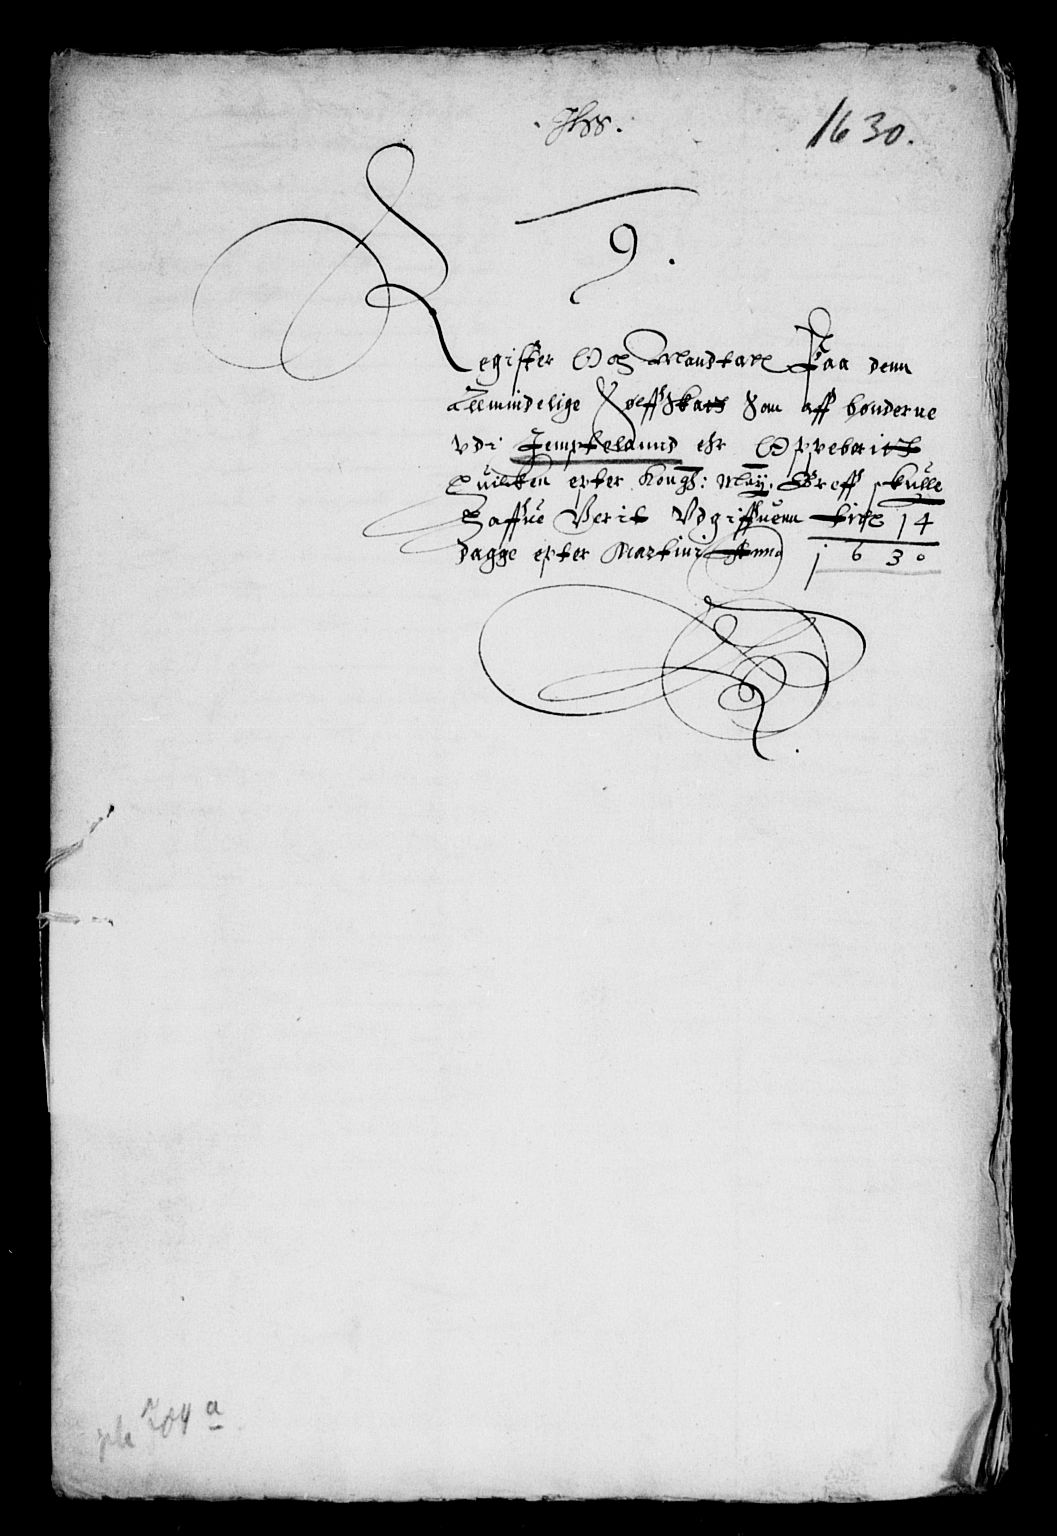 Jhss.
1630.
9.
Register Och Mandtall Paa denn
Allmindelige Sølffskatt Som aff bønderne
vdi Jempteland ehr Oppebaritt
huilcken epter Kongs: May: Breff skulle
haffue Verit Vdgiffuenn till 14
dagge epter Martini Anno 1630
204 a